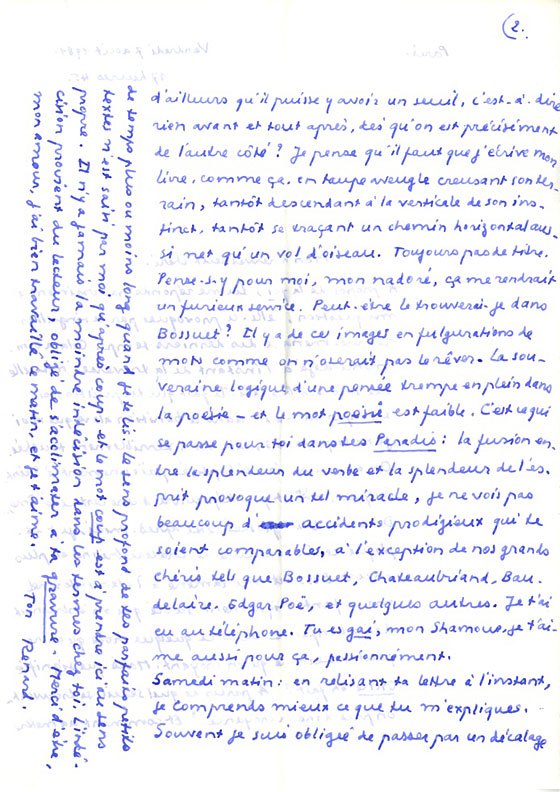 2.
d'ailleurs qu'il puisse y avoir un seuil, c'est-à-dire
rien avant et tout après, dès qu'on est précisément
de l'autre côté ? Je pense qu'il faut que j'écrive mon
livre, comme ça, en taupe aveugle creusant son ter-
rain, tantôt descendant à la verticale de son ins-
tinct, tantôt se traçant un chemin horizontal aus-
si net qu'un vol d'oiseau. Toujours pas de titre.
Pense-s-y pour moi, mon nadoré, ça me rendrait
un furieux service. Peut-être le trouverai-je dans
Bossuet ? Il y a de ces images en fulgurations de
mots comme on n'oserait pas le rêver. La sou-
veraine logique d'une pensée trempe en plein dans
la poésie - et le mot poésie est faible. C'est ce qui
se passe pour toi dans tes Paradis : la fusion en-
tre la splendeur du verbe et la splendeur de l'es-
prit provoque un tel miracle, je ne vois pas
beaucoup d' accidents prodigieux qui te
soient comparables, à l'exception de nos grands
chéris tels que Bossuet, Chateaubriand, Bau-
delaire, Edgar Poë, et quelques autres. Je t'ai
eu au téléphone. Tu es gai, mon Shamouse, je t'ai-
me aussi pour ça, passionnément.
Samedi matin : en relisant ta lettre à l'instant,
je comprends mieux ce que tu m'expliques.
Souvent je suis obligée de passer par un décalage
de temps plus ou moins long quand je te lis : le sens profond de tes parfaits petits
textes n'est saisi par moi qu'après coup - et le mot coup est à prendre ici au sens
propre. Il n'y a jamais la moindre indécision dans les termes chez toi. L'indé-
cision provient du lecteur, obligé de s'acclimater à ta gravure. Merci d'être,
mon amour, j'ai bien travaillé ce matin, et je t'aime. Ton Renard.